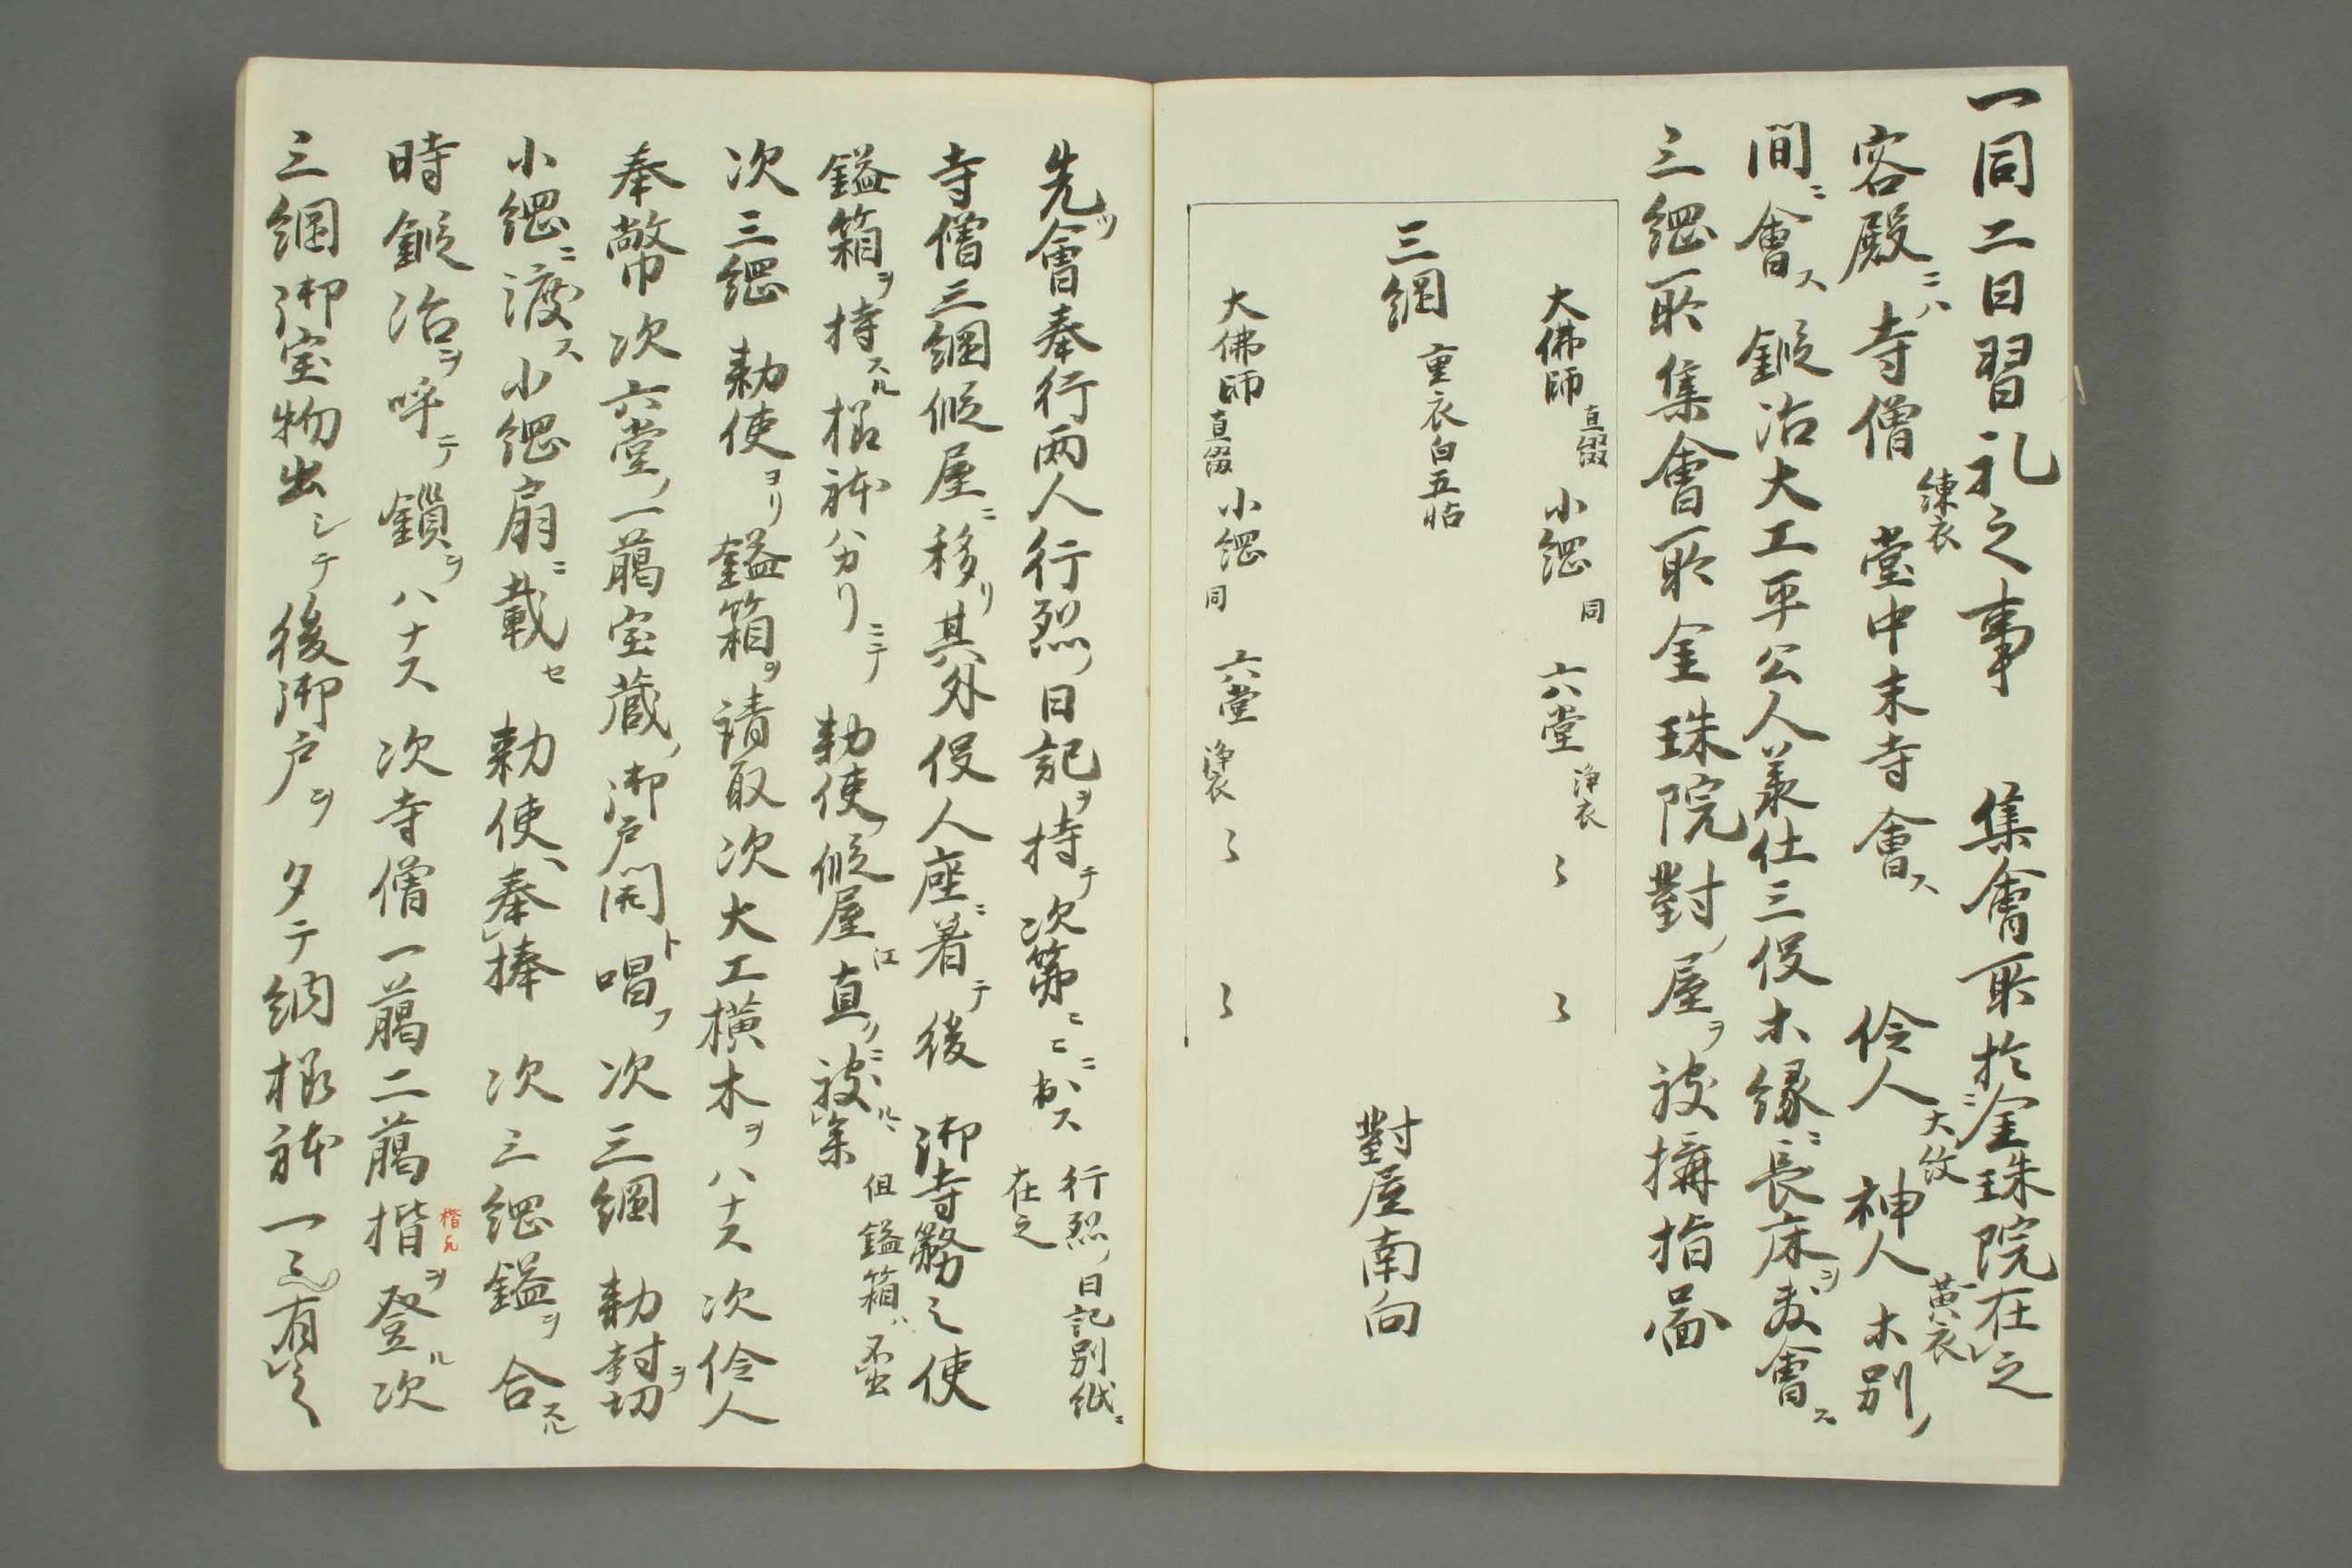 一同二日習礼之事　集會所於金珠院ニ在之
客殿ニハ寺僧練衣　堂中末寺會ス　伶人大紋　神人黄衣ホ別ノ
間ニ會ス　鍛冶大工平公人兼仕三役ホ縁ニ長床ヲ敷會ス
三綱所集會所金珠院對ノ屋ヲ被搆指圖
大佛師直綴　小綱同　六堂浄衣　ミ　ミ
三綱　重衣白五帖
對屋南向
大佛師直綴　小綱同　六堂浄衣　ミ　ミ
先ツ會奉行两人行烈ノ日記ヲ持テ次第ニニニ出ス　行烈ノ日記別紙ニ在之
寺僧三綱假屋ニ移リ其外役人座ニ着テ後　御寺務之使
鎰箱ヲ持スル極躰ハカリニテ　勅使ノ假屋江直ソニ被ルヽ条　但鎰箱ハ不出
次三綱　勅使ヨリ鎰箱ヲ請取次大工横木ヲハナス　次伶人
奉幣次六堂ノ一﨟宝蔵ノ御戸開ト唱フ　次三綱　勅封ヲ切
小綱ニ渡ス小綱扇ニ載セ　勅使ヘ奉捧　次三綱鎰ヲ合スル
時鍛冶ヲ呼テ鎖ヲハナス　次寺僧一﨟二﨟揩ヲ登ル次
楷瓦
三綱御宝物出シテ後御戸ヲタテ納極躰一ニ有之